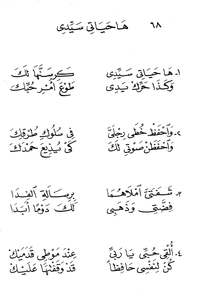 ٦٨ هَا حَيَاتِي سَيِّدِي
١. هَا حَيَاتِي سَيِّدِي كَرَّسْتُهَا لَكَ
وَكَذَا حَرِّكْ يَدِي طَوْعَ أَمْرِ حُبِّكَ
٢. وَاحْفَظْ خُطَى رِجْلَيَّ فِي سُلُوكِ طُرُقِكَ
وَاحْفَظَنْ صَوْتِي لَكَ كَيْ يُذِيعَ حَمْدَكَ
٣. شَفَتَيَّ امْلَأْهُمَا بِرِسَالَةِ الْفِدَا
فِضَّتِي وَذَهَبِي لَكَ دَوْمًا أَبَدَا
٤. أُلْقِي حُبِّي يَا رَبِّي عِنْدَ مَوْطِئِ قَدَمَيْكَ
كُنْ لِنَفْسِي حَافِظًا قَدْ وَقَفْتُهَا عَلَيْكَ